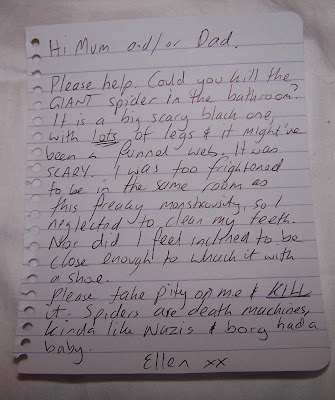 Hi Mum and/or Dad.
Please help. Could you kill the
GIANT spider in the bathroom?
It is a big scary black one,
with lots of legs & it might've
been a funnel web. It was
SCARY. I was too frightened
to be in the same room as
this freaky monstrousity, so I
neglected to clean my teeth.
Nor did I feel inclined to be
close enough to whack it with
a shoe.
Please take pity on me & KILL
it. Spiders are death machines,
kinda like Nazis & borg had a
baby.
Ellen xx